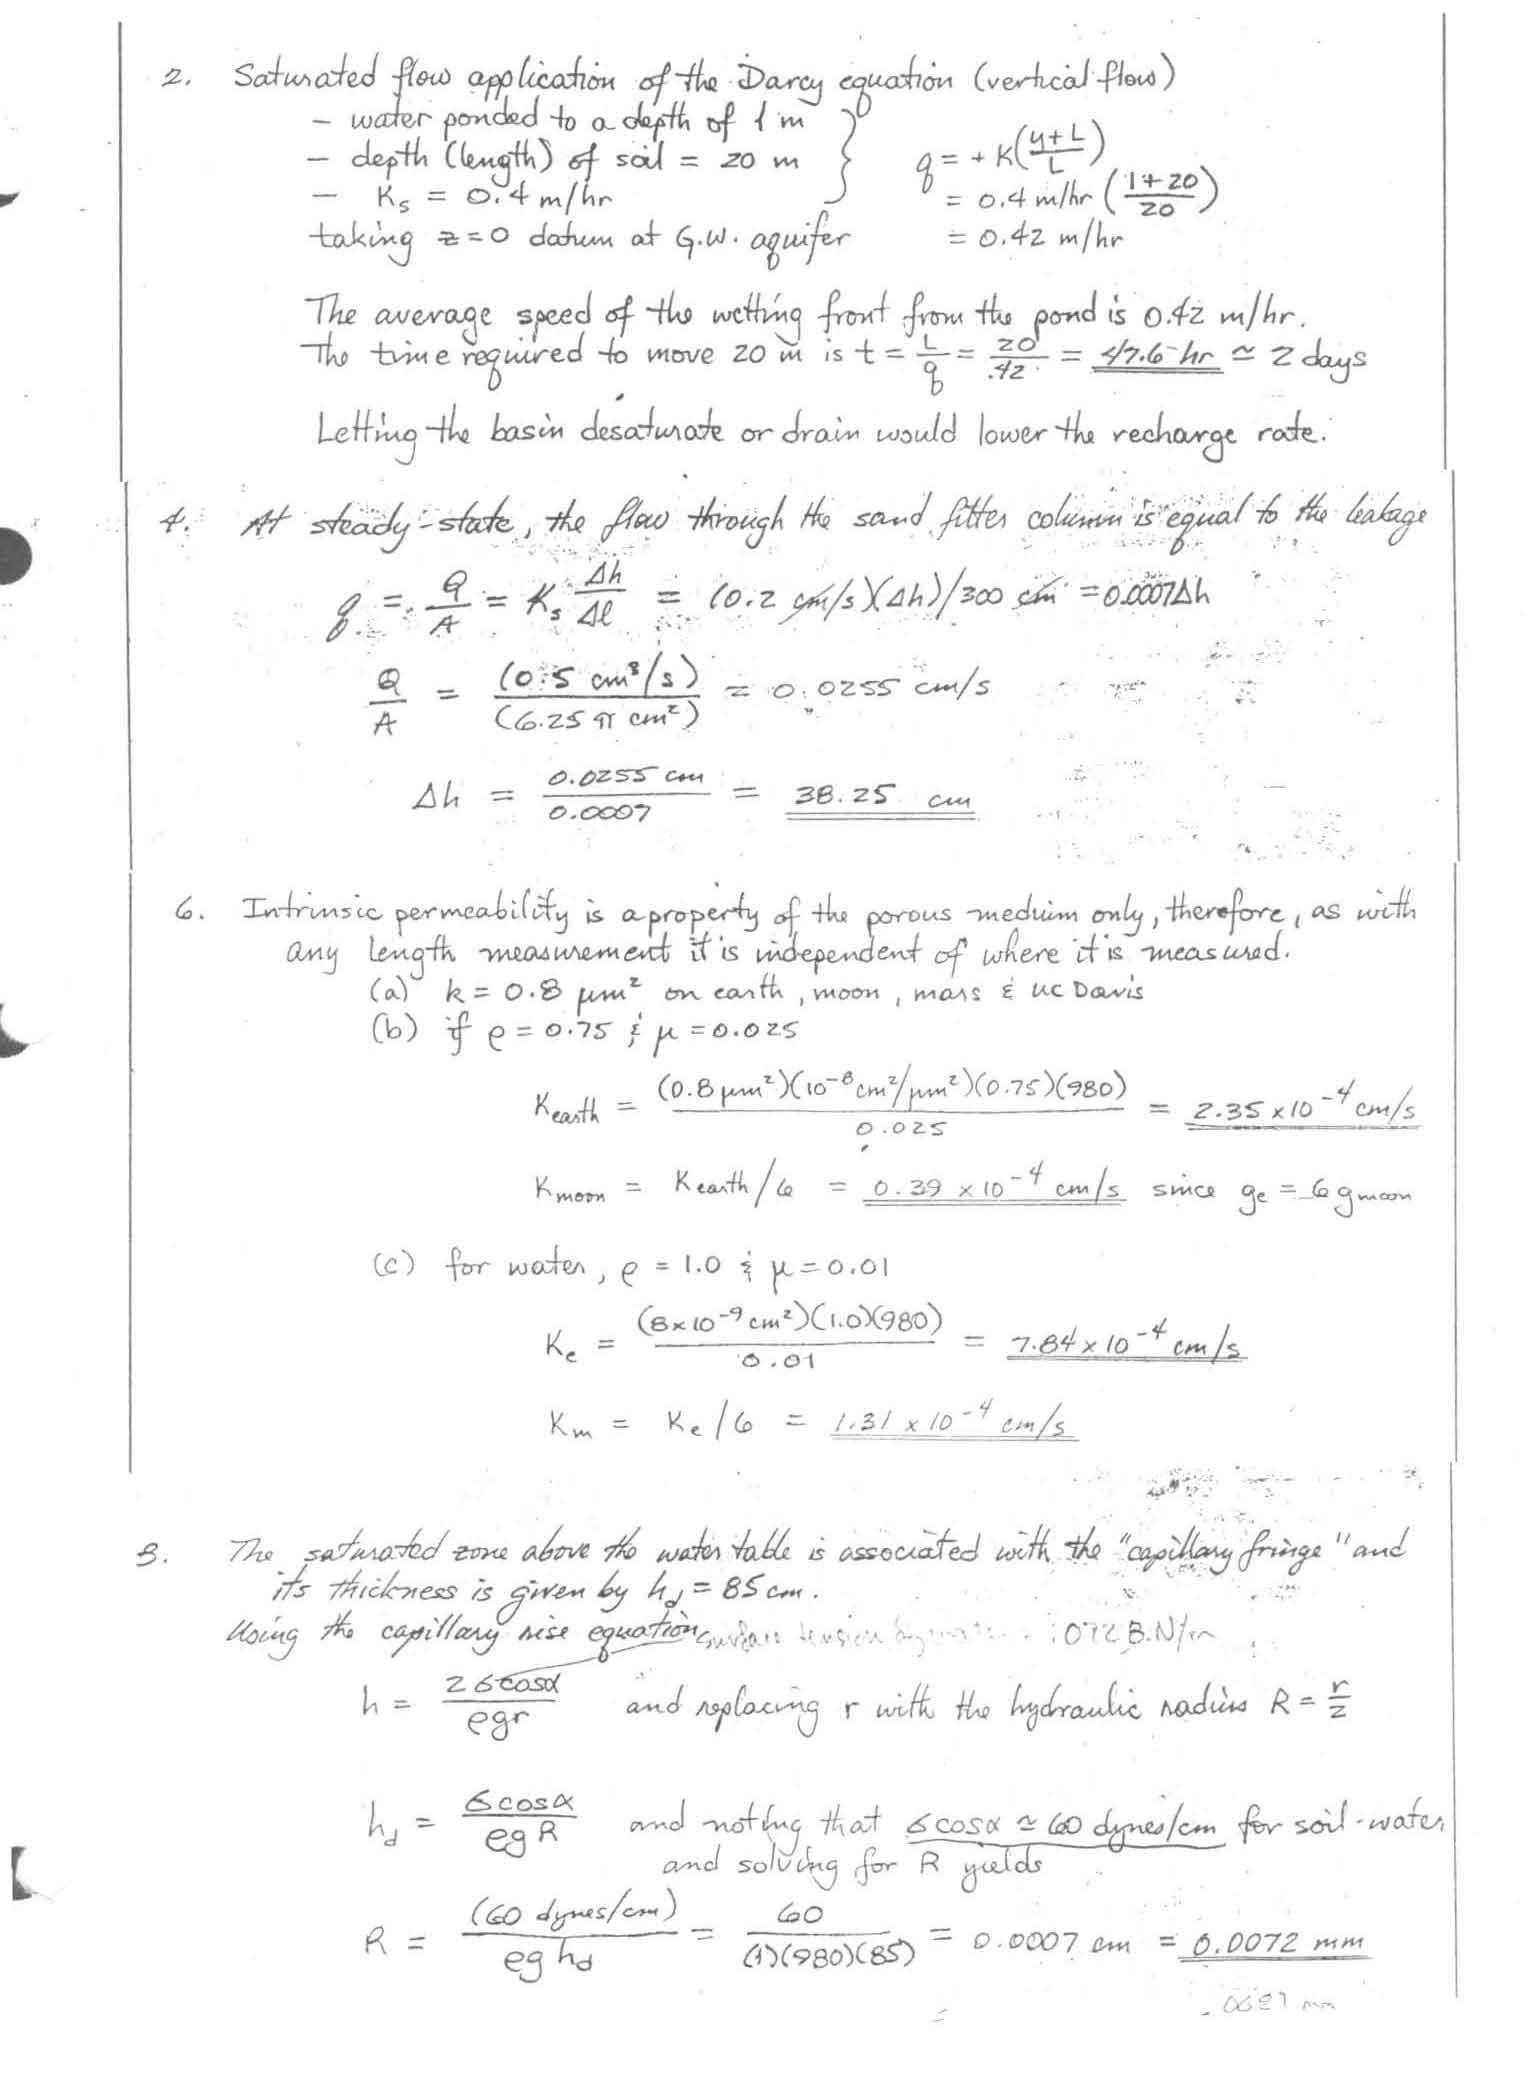 2. Saturated flow application of the Darcy equation (vertical flow)
- water ponded to a depth of 1 m
- depth (length) of soil = 20 m
- Ks = 0.4 m/hr
taking z=0 datum at G.W. aquifer
q = + K(y+L/L)
= 0.4 m/hr (1+20/20)
= 0.42 m/hr
The average speed of the wetting front from the pond is 0.42 m/hr.
The time required to move 20 m is t = L/q = 20/.42 = 47.6 hr ≃ 2 days
Letting the basin desaturate or drain would lower the recharge rate.
4. At steady-state, the flow through the sand filter column is equal to the leakage
q = Q/A = Ks Δh/Δl = (0.2 cm/s)(Δh)/300 cm = 0.0007Δh
Q/A = (0.5 cm³/s)/(6.25 π cm²) = 0.0255 cm/s
Δh = 0.0255 cm/0.0007 = 38.25 cm
6. Intrinsic permeability is a property of the porous medium only, therefore, as with
any length measurement it is independent of where it is measured.
(a) k = 0.8 μm² on earth, moon, mars & UC Davis
(b) if ρ = 0.75 & μ = 0.025
Kearth = (0.8 μm²)(10⁻⁸cm²/μm²)(0.75)(980)/0.025 = 2.35 x10⁻⁴ cm/s
Kmoon = Kearth/6 = 0.39 x 10⁻⁴ cm/s since ge = 6 gmoon
(c) for water, ρ = 1.0 & μ = 0.01
Ke = (8x10⁻⁹ cm²)(1.0)(980)/0.01 = 7.84 x 10⁻⁴ cm/s
Km = Ke/6 = 1.31 x 10⁻⁴ cm/s
8. The saturated zone above the water table is associated with the "capillary fringe" and
its thickness is given by hd = 85 cm.
Using the capillary rise equation surface tension .0728 N/m
h = 2σcosα/ρgr and replacing r with the hydraulic radius R = r/2
hd = σcosα/ρgR and noting that σcosα ≃ 60 dynes/cm for soil-water
and solving for R yields
R = (60 dynes/cm)/ρg hd = 60/(1)(980)(85) = 0.0007 cm = 0.0072 mm